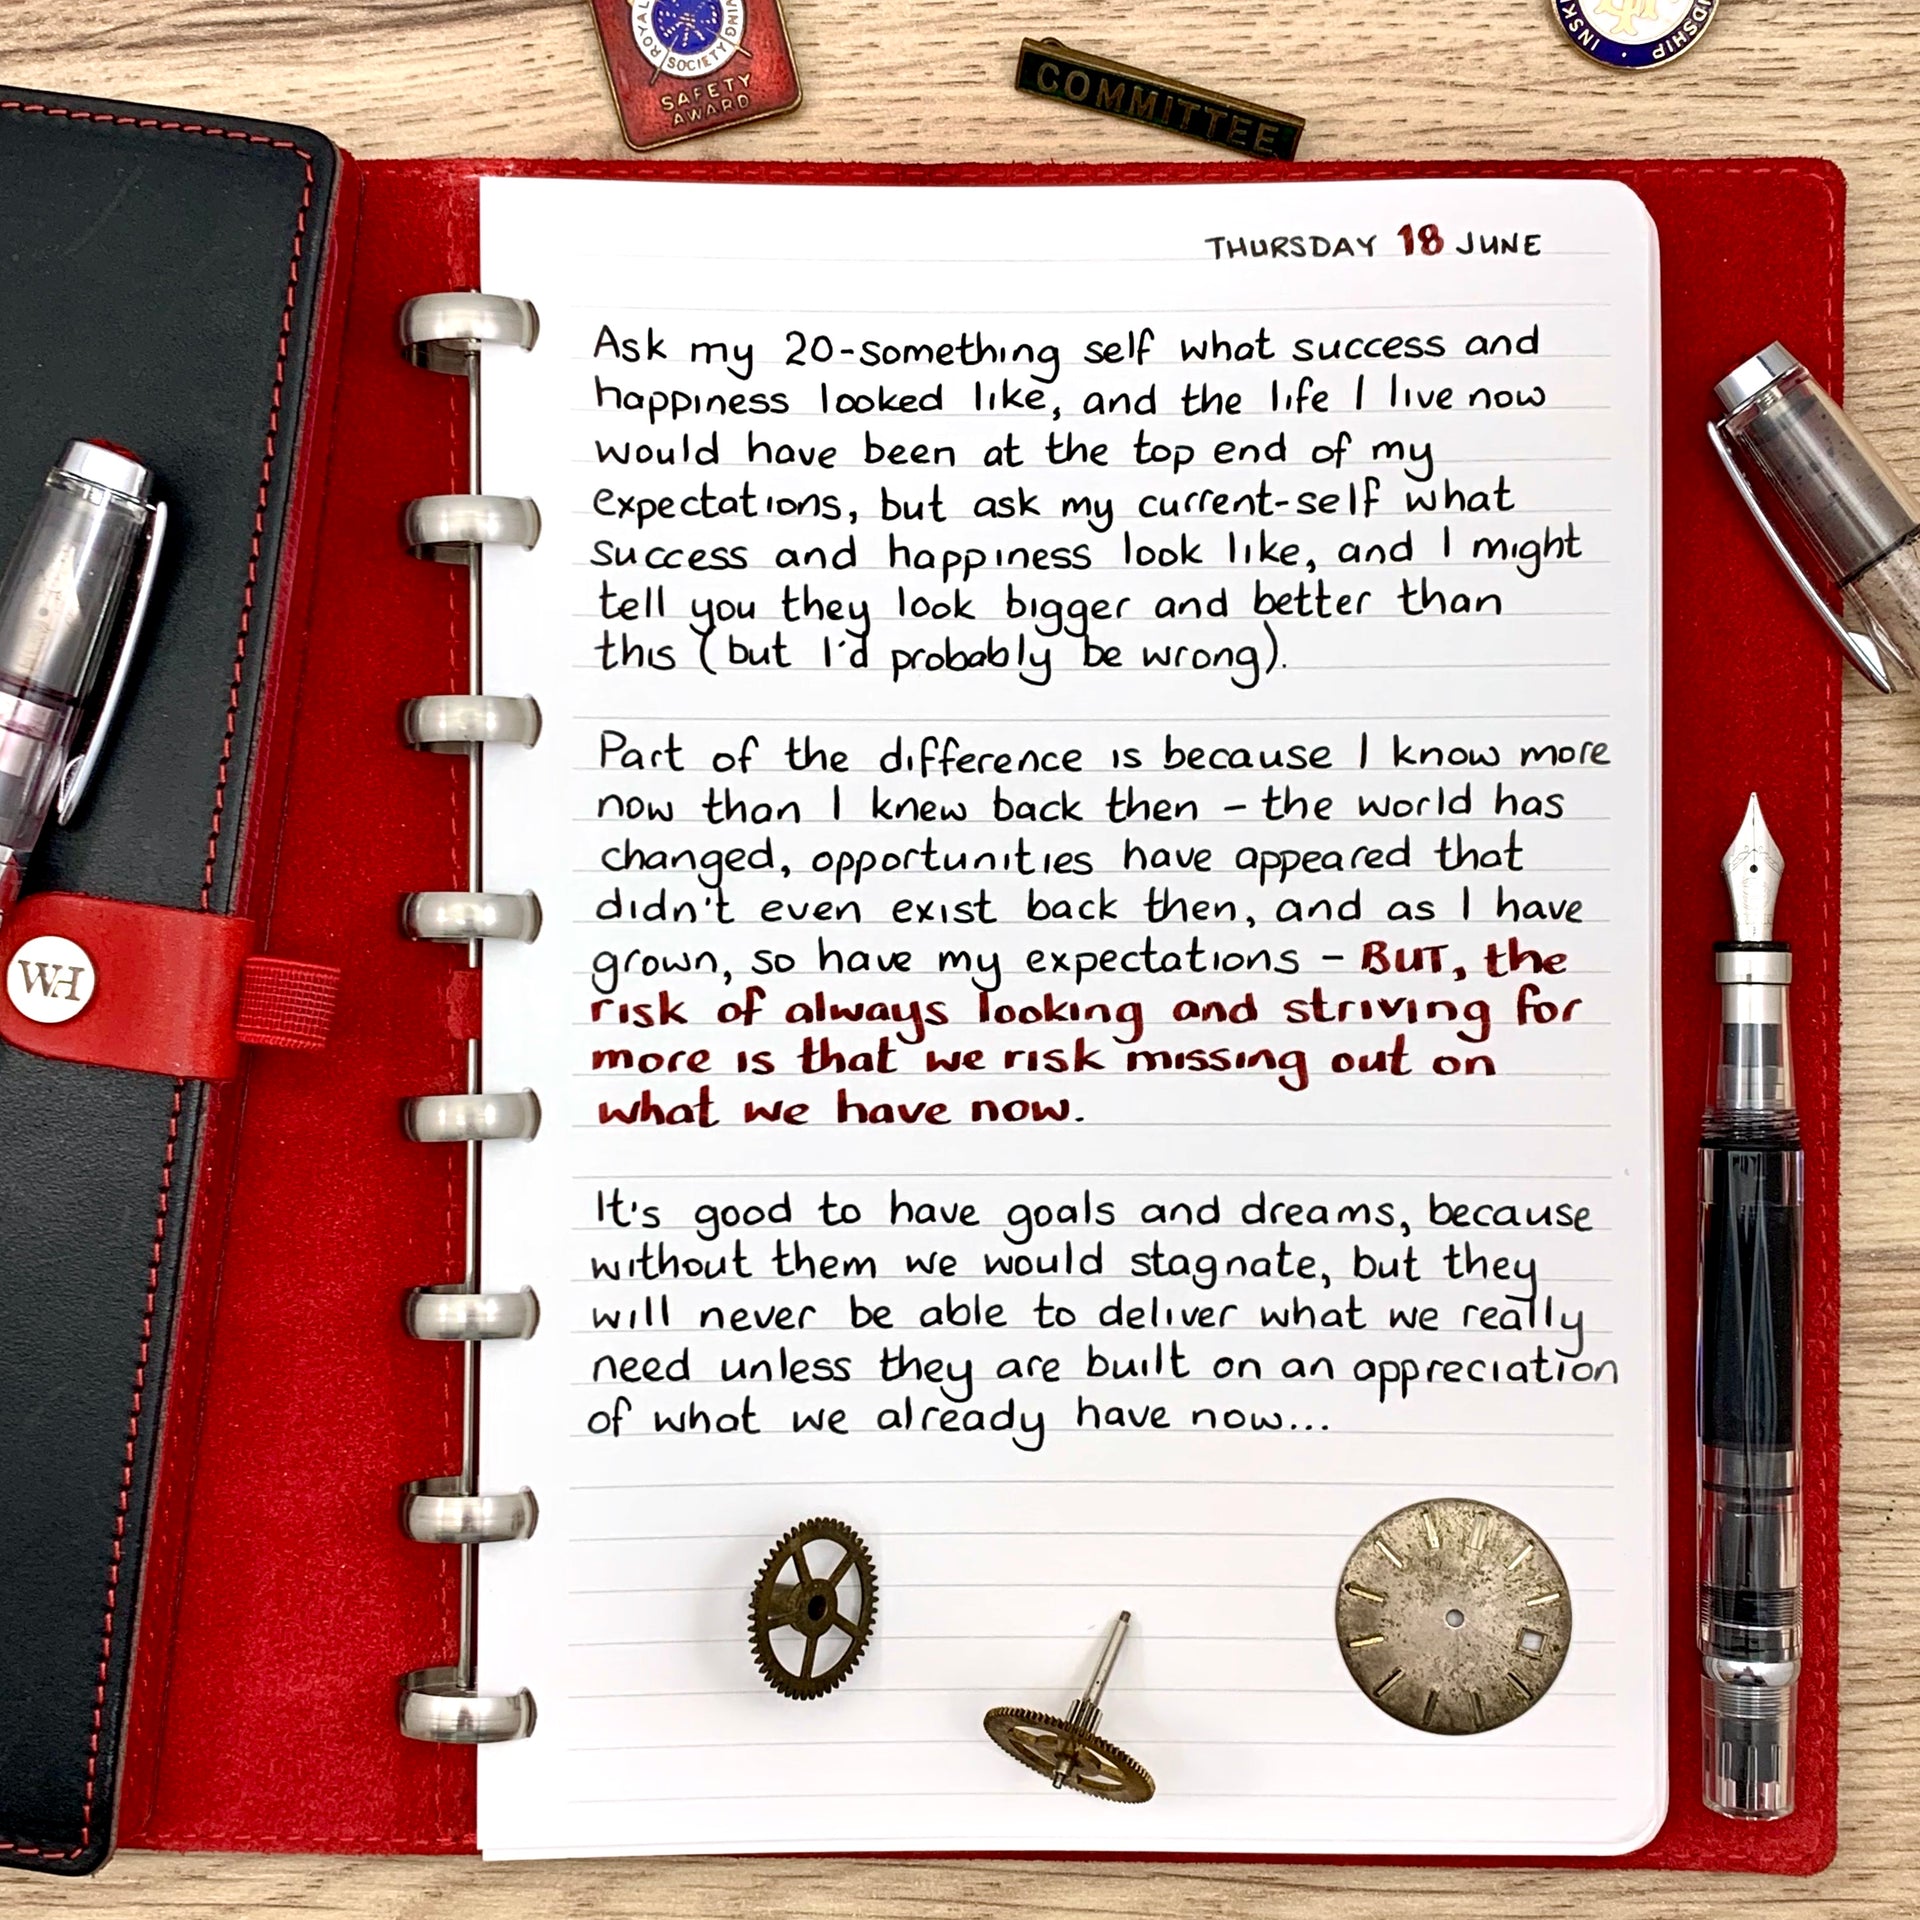 ROYAL
VING
SOCIETY
SAFETY
AWARD
COMMITTEE
THURSDAY 18 JUNE
Ask my 20-something self what success and
happiness looked like, and the life I live now
would have been at the top end of my
expectations, but ask my current-self what
success and happiness look like, and I might
tell you they look bigger and better than
this (but I'd probably be wrong).
Part of the difference is because I know more
now than I knew back then - the world has
changed, opportunities have appeared that
didn't even exist back then, and as I have
grown, so have my expectations - BUT, the
risk of always looking and striving for
more is that we risk missing out on
what we have now.
It's good to have goals and dreams, because
without them we would stagnate, but they
will never be able to deliver what we really
need unless they are built on an appreciation
of what we already have now...
WH